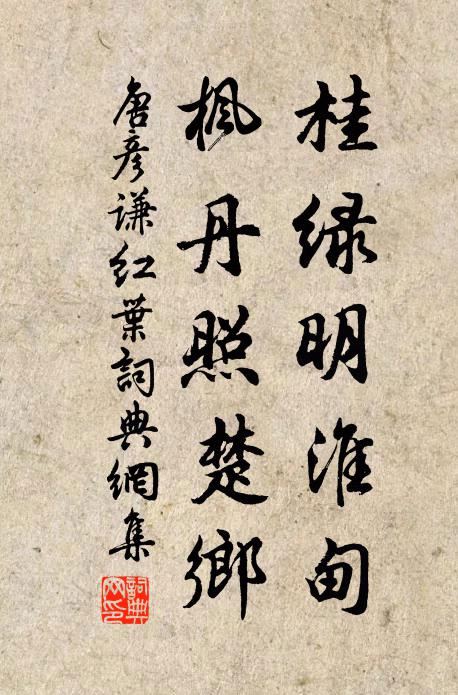 桂绿明淮甸
枫丹照楚鄉
唐彦谦红葉詞典網集
詞典网印